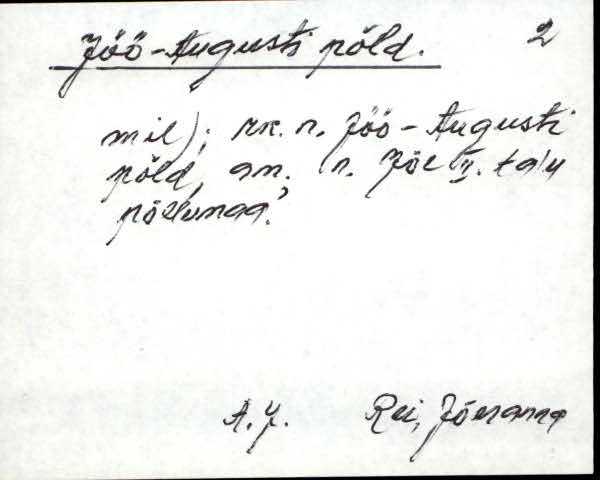 Jõõ-Augusti põld. 2
mil); rk. n. Jõõ-Augusti
põld, an. n. Jõe II. talu
põllumaa.
A. J. Rei, Jõeranna